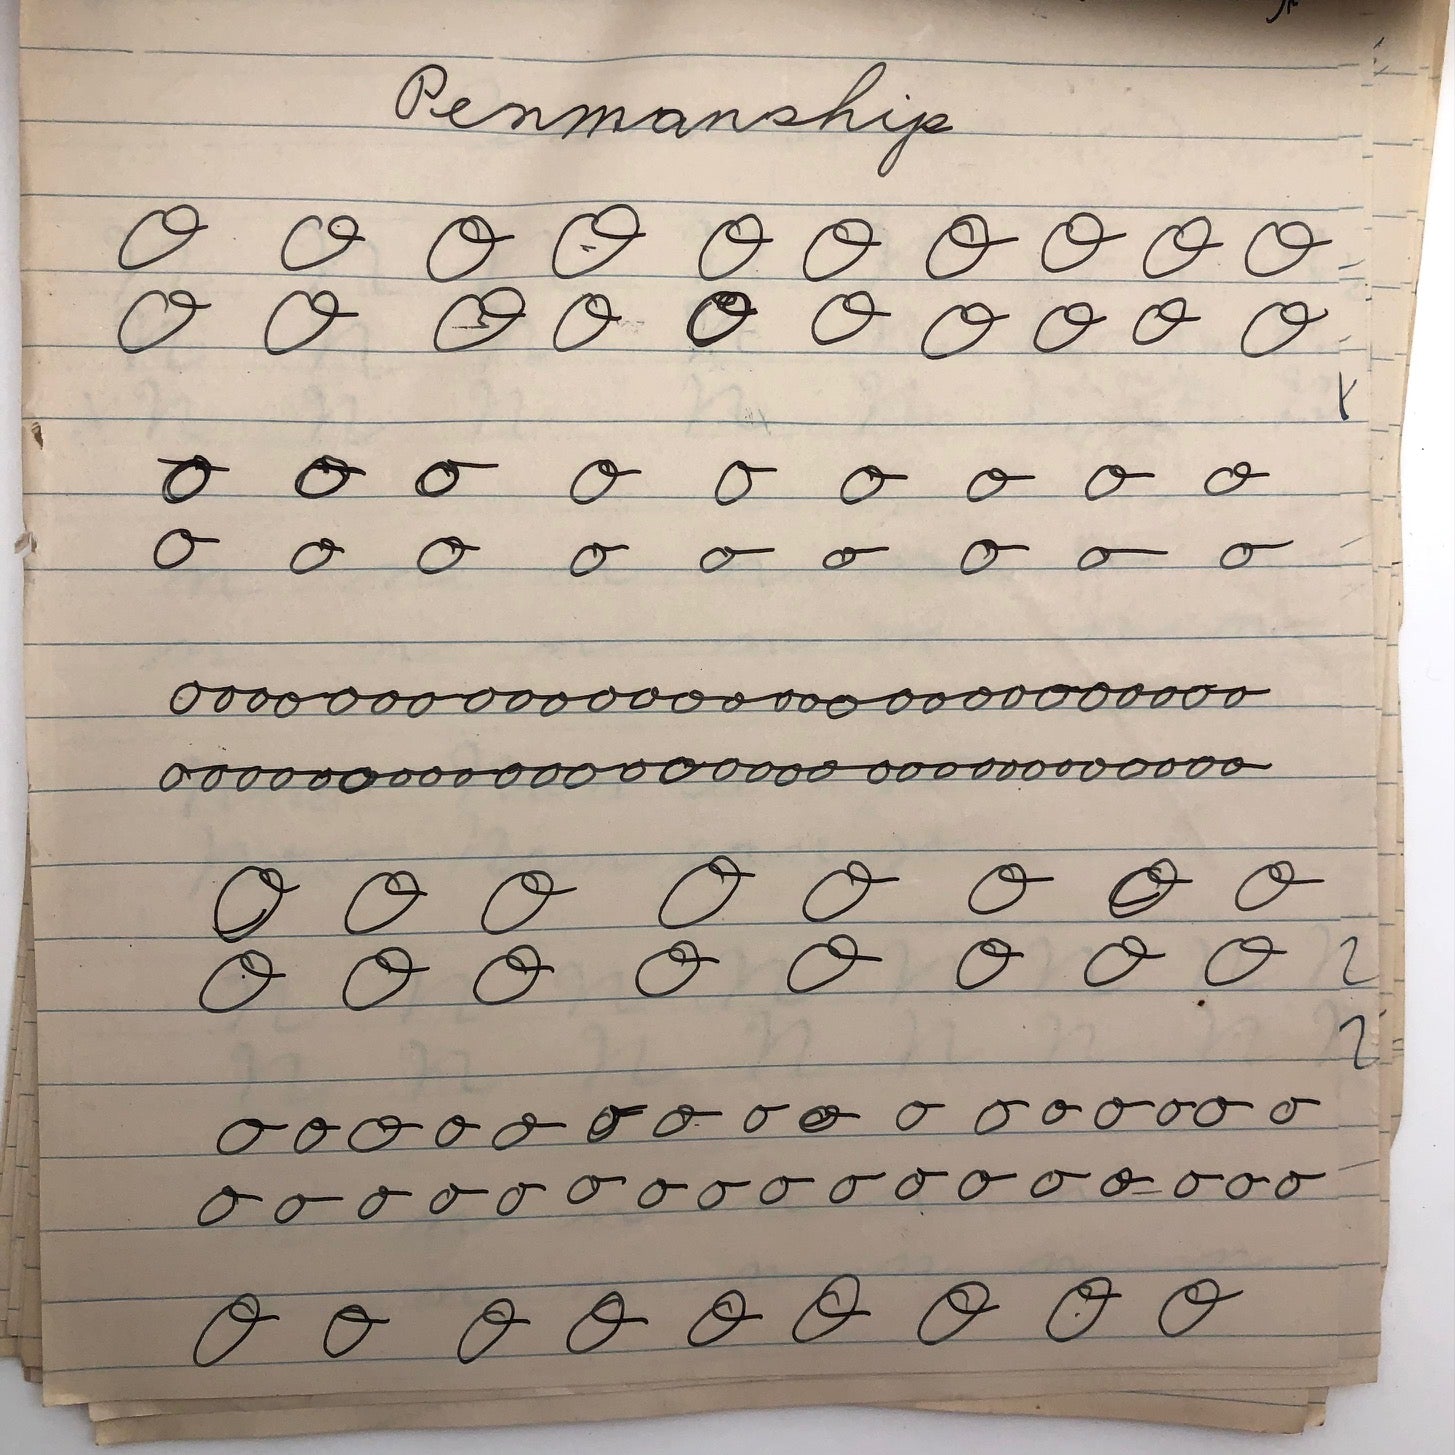 Penmanship
O O O O O O O O O O
O O O O O O O O O O
o o o o o o o o o
o o o o o o o o o
ooooooooooooooooooooooooooooo
oooooooooooooooooooooooooooooo
O O O O O O O O
O O O O O O O O
o o o o o o o o o o o o o o o o
o o o o o o o o o o o o o o o o o
O O O O O O O O O